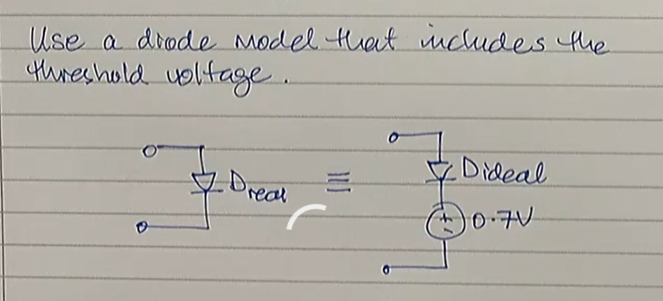 Use a diode model that includes the
threshold voltage.
Dreal ≡ Dideal
+
-
0.7V